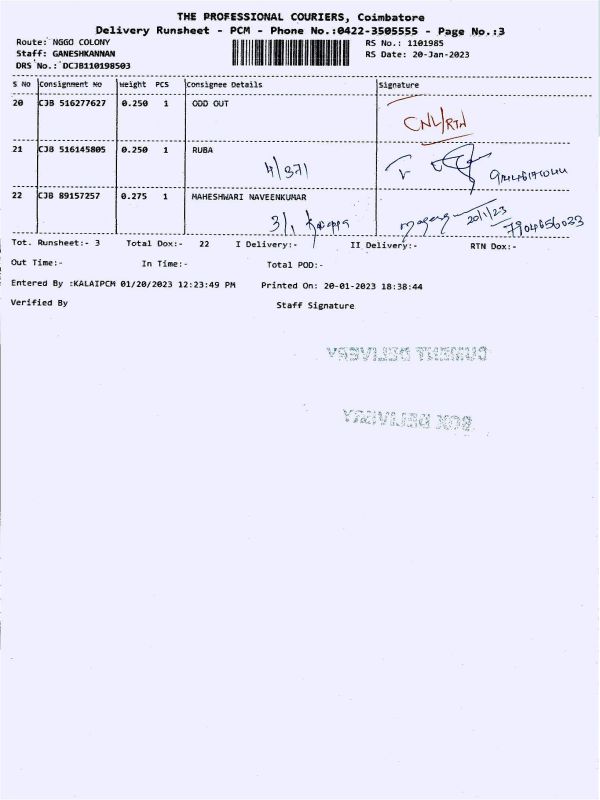 THE PROFESSIONAL COURIERS, Coimbatore
Delivery Runsheet - PCM - Phone No.:0422-3505555 - Page No.:3
Route: NGGO COLONY RS No.: 1101985
Staff: GANESHKANNAN RS Date: 20-Jan-2023
DRS No.: DCJB110198503
S No Consignment No Weight PCS Consignee Details Signature
20 CJB 516277627 0.250 1 ODD OUT
CNL/RTN
21 CJB 516145805 0.250 1 RUBA
4/371
22 CJB 89157257 0.275 1 MAHESHWARI NAVEENKUMAR
3/1 20/1/23
7904656033
Tot. Runsheet:- 3 Total Dox:- 22 I Delivery:- II Delivery:- RTN Dox:-
Out Time:- In Time:- Total POD:-
Entered By :KALAIPCM 01/20/2023 12:23:49 PM Printed On: 20-01-2023 18:38:44
Verified By Staff Signature
CUMENT DELIVERY
BOX DELIVERY